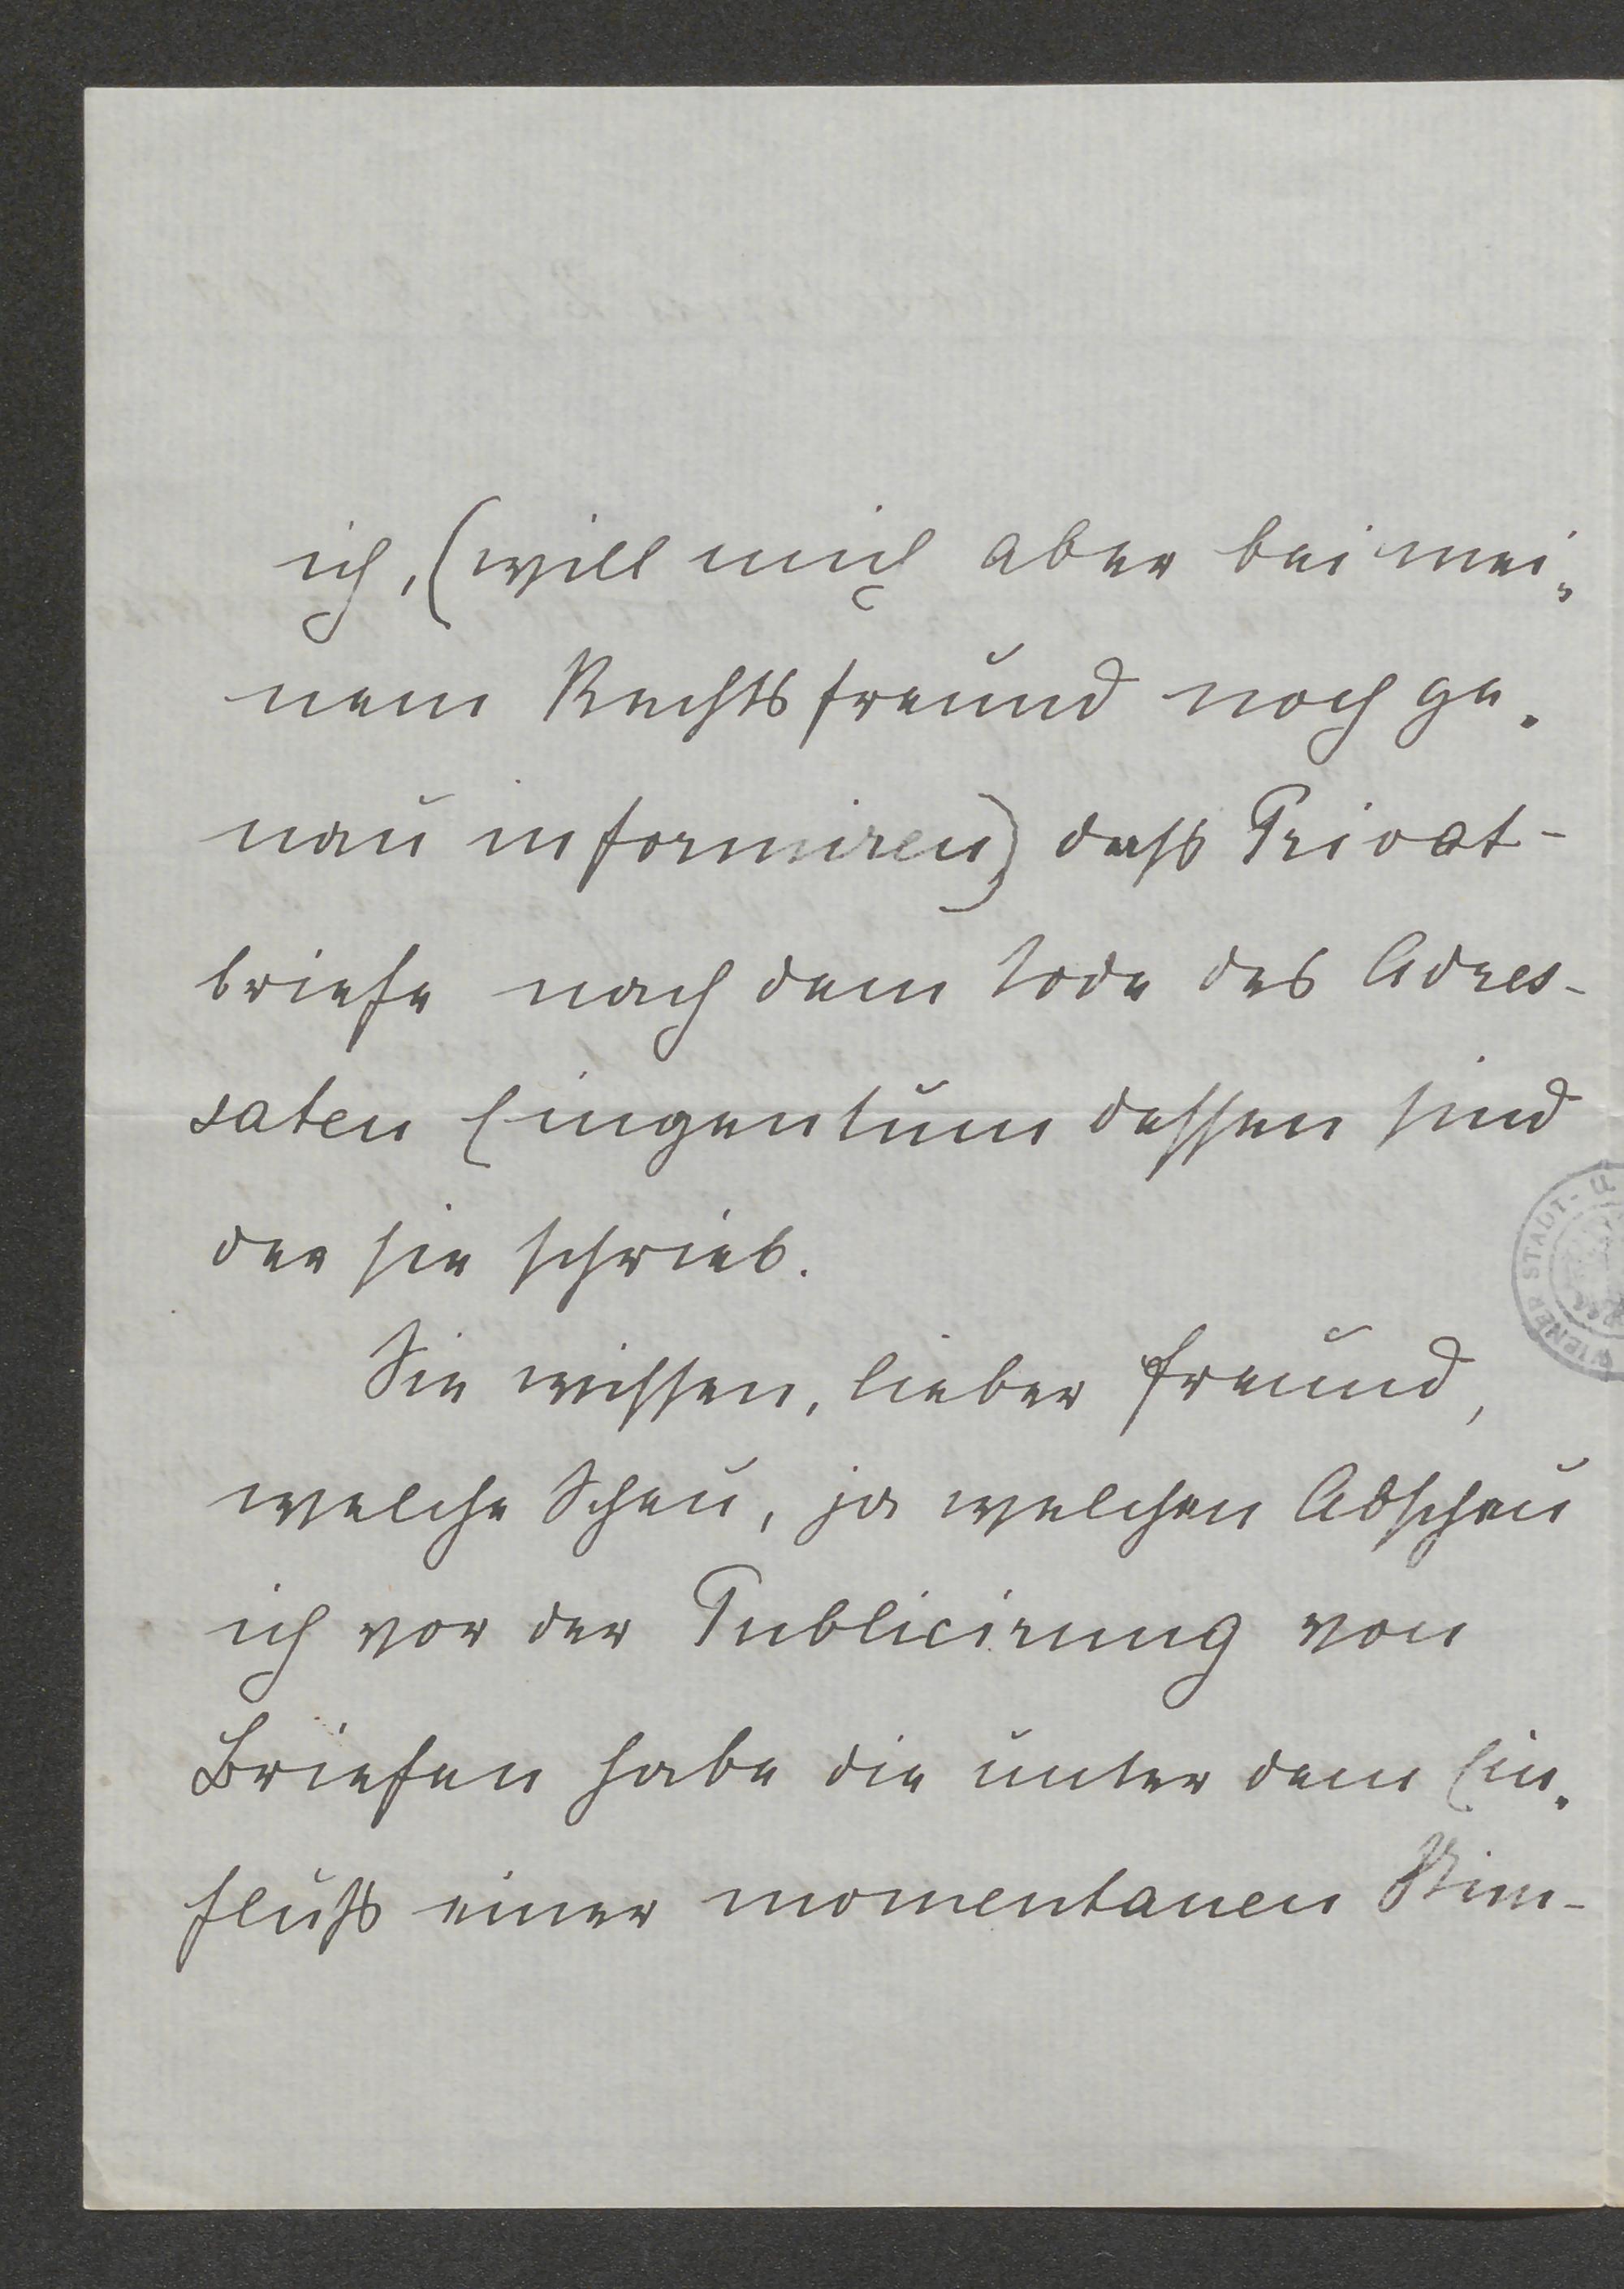 ich, (will mich aber bei mei-
nem Rechtsfreund noch ge-
nau informiren) dass Privat-
briefe nach dem Tode des Adres-
saten Eingentum dessen sind
der sie schrieb.
Sie wissen, lieber Freund,
welche Scheu, ja welchen Abscheu
ich vor der Publicirung von
Briefen habe die unter dem Ein-
fluss einer momentanen Stim-
WIENER STADT-